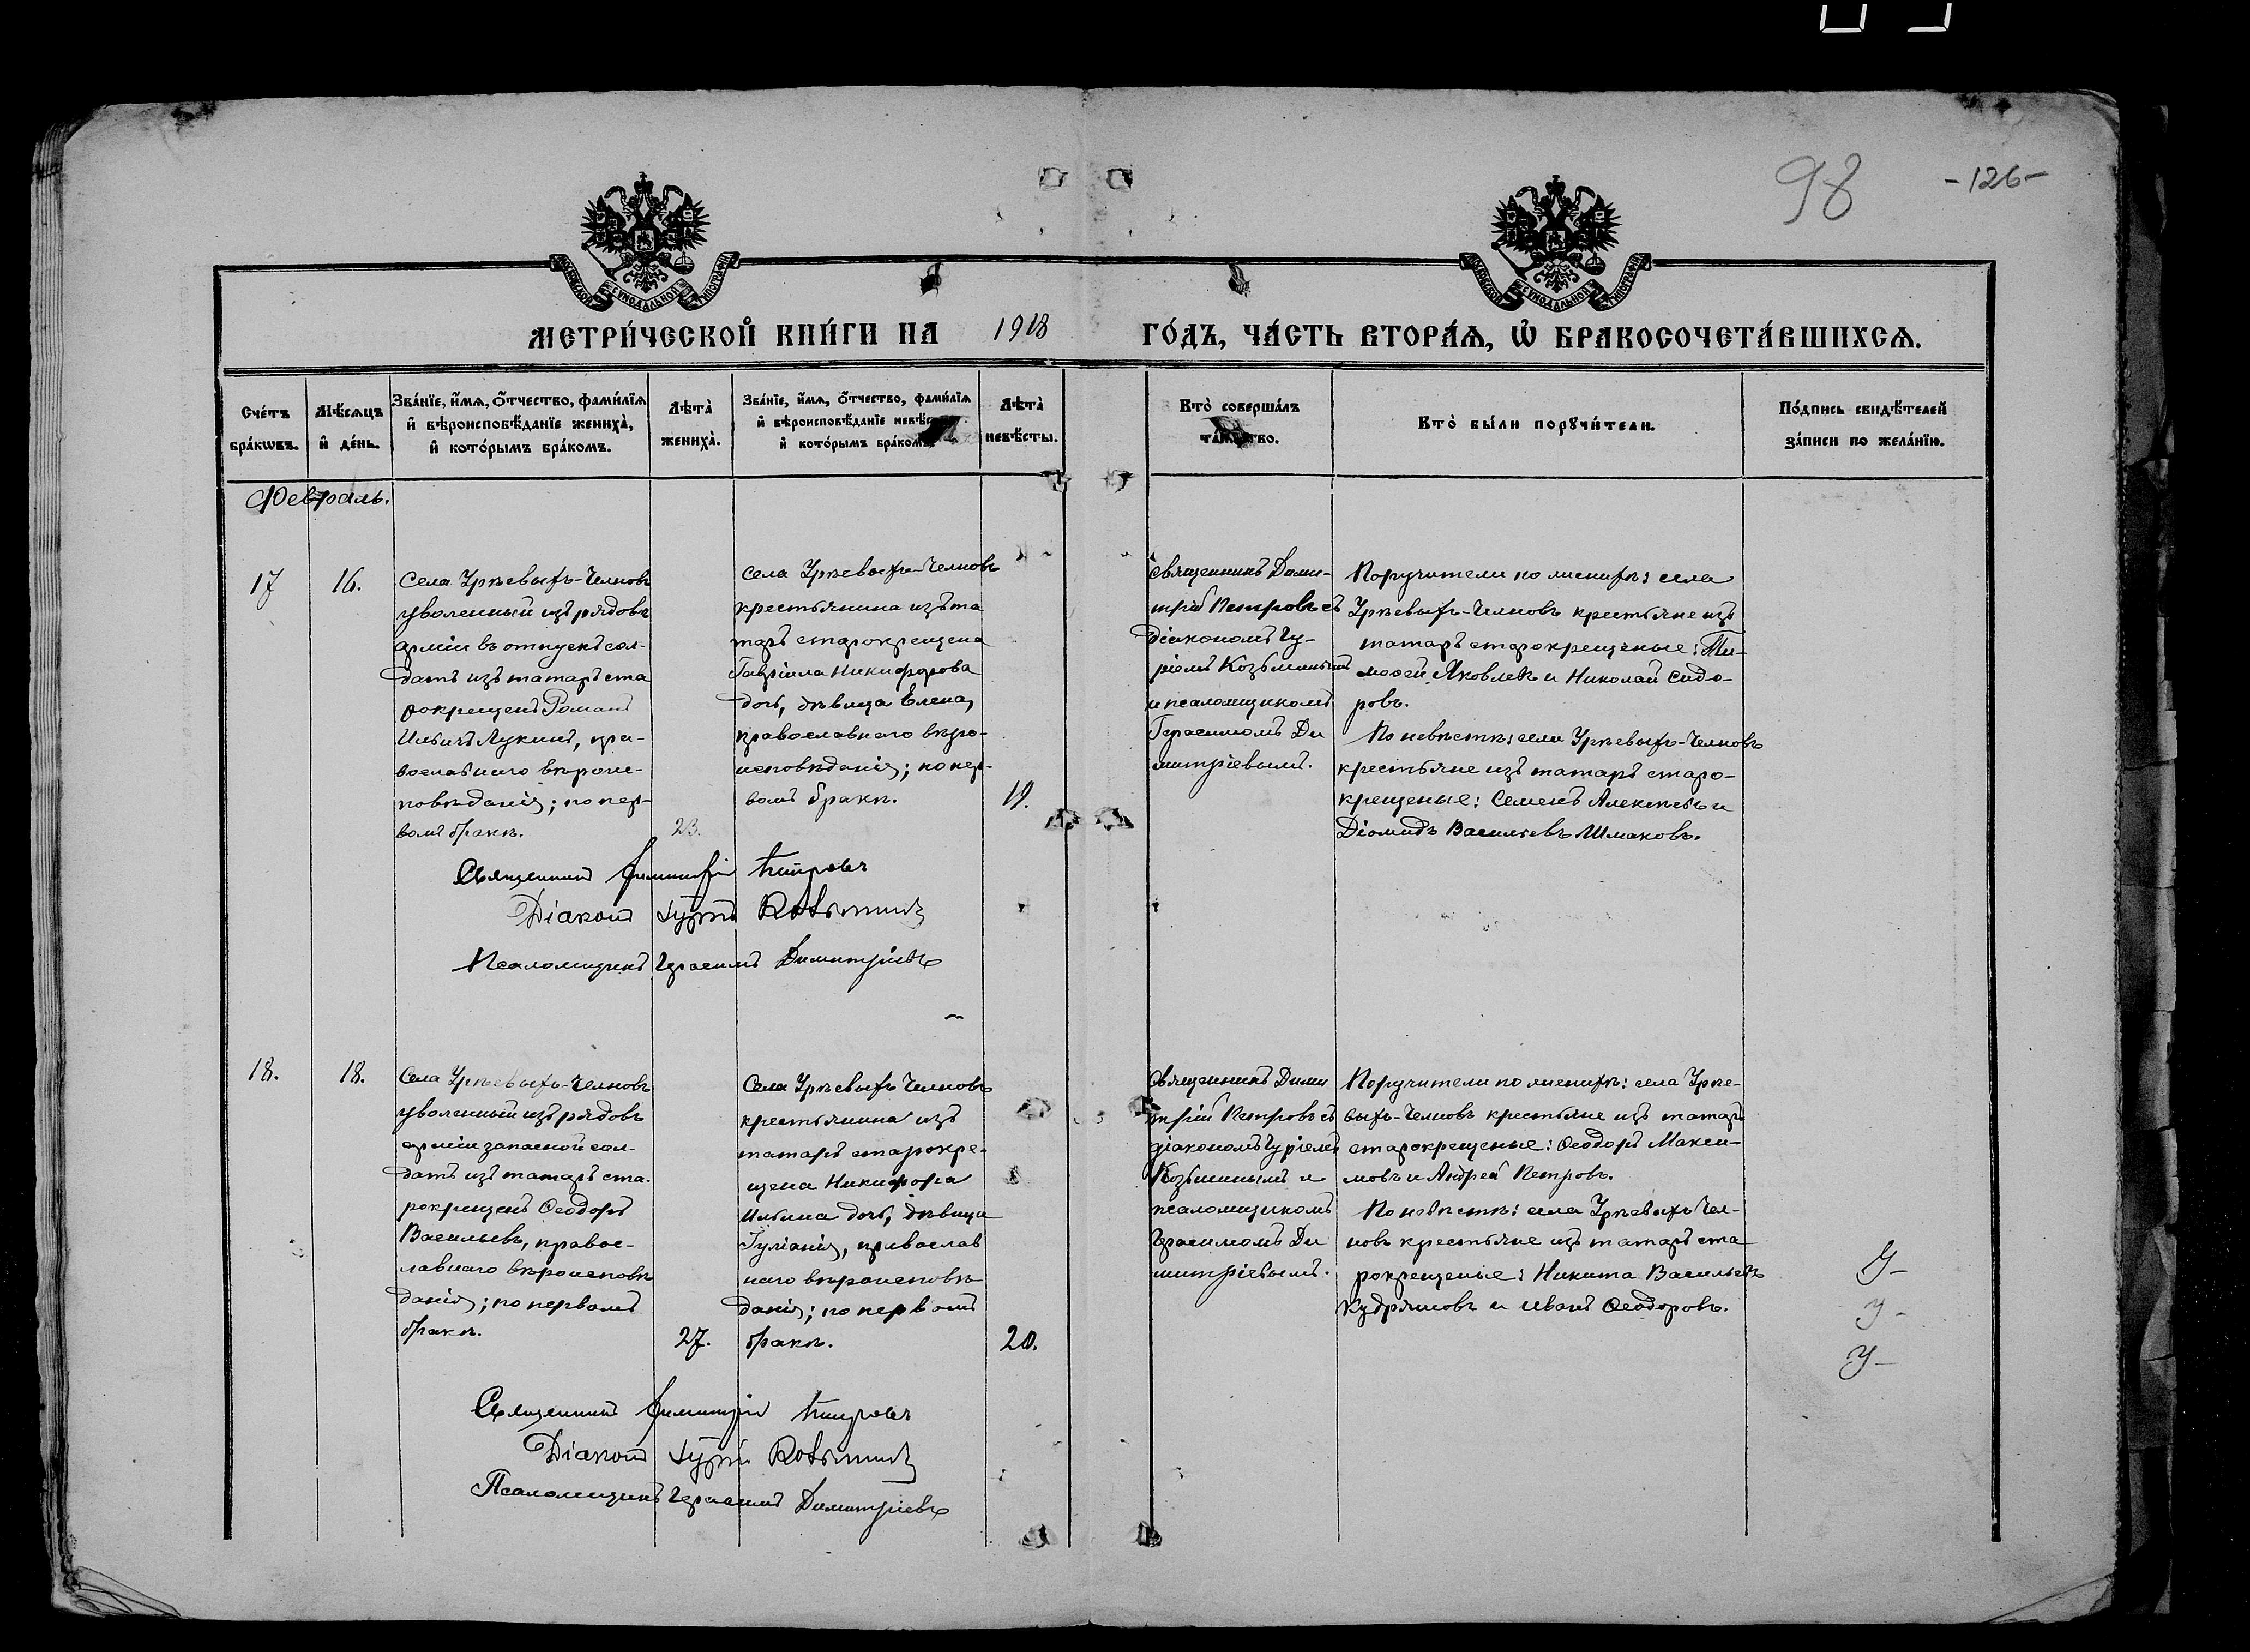 98 -126-
МОСКОВСКОЙ СѴНОДАЛЬНОЙ ТИПОГРАФІИ
МОСКОВСКОЙ СѴНОДАЛЬНОЙ ТИПОГРАФІИ
МЕТРИ́ЧЕСКОЙ КНИ́ГИ НА 1918 ГО́ДЪ, ЧА́СТЬ ВТОРА́Ѧ, Ѡ҆ БРАКОСОЧЕТА́ВШИХСѦ.
Сче́тъ
бра́кѡвъ.
Мѣ́сѧцъ
и҆ де́нь.
Зва́нїе, и҆́мѧ, ѻ҆́тчество, фами́лїѧ
и҆ вѣроисповѣ́данїе жениха̀,
и҆ кото́рымъ бра́комъ.
Лѣта̀
жениха̀.
Зва́нїе, и҆́мѧ, ѻ҆́тчество, фами́лїѧ
и҆ вѣроисповѣ́данїе невѣ́сты
и҆ кото́рымъ бра́комъ.
Лѣта̀
невѣ́сты.
Кто̀ соверша́лъ
та́инство.
Кто̀ бы́ли порꙋчи́тели.
По́дпись свидѣ́телей
за́писи по жела́нїю.
Февраль.
17
16.
Села Урѣевыхъ-Челновъ
уволенный изъ рядовъ
арміи въ отпускъ сол-
датъ изъ татаръ ста
рокрещенъ Романъ
Ильичъ Лукинъ, пра-
вославнаго вѣроис-
повѣданія; по пер-
вомъ бракѣ.
23.
Села Урѣевыхъ-Челновъ
крестьянина изъ та
таръ старокрещена
Гавріила Никифорова
дочь, дѣвица Елена,
православнаго вѣро-
исповѣданія; по пер-
вомъ бракѣ.
19.
Священникъ Дими-
трій Петровъ съ
діакономъ Гу-
ріемъ Козьминымъ
и псаломщикомъ
Герасимомъ Ди
митріевымъ.
Поручители по женихѣ: села
Урѣевыхъ-Челновъ крестьяне изъ
татаръ старокрещеные: Ти-
моѳей Яковлевъ и Николай Сидо-
ровъ.
По невѣстѣ: села Урѣевыхъ-Челновъ
крестьяне изъ татаръ старо-
крещеные: Семенъ Алексѣевъ и
Діомидъ Васильевъ Шмаковъ.
Священникъ Димитрій Петровъ
Діаконъ Гурій Козьминъ
Псаломщикъ Герасимъ Димитріевъ
18.
18.
Села Урѣевыхъ-Челновъ
уволенный изъ рядовъ
арміи запасной сол-
датъ изъ татаръ ста-
рокрещенъ Ѳеодоръ
Васильевъ, правос-
лавнаго вѣроисповѣ
данія; по первомъ
бракѣ.
27.
Села Урѣевыхъ Челновъ
крестьянина изъ
татаръ старокре-
щена Никифора
Ильина дочь, дѣвица
Іуліанія, православ
наго вѣроисповѣ
данія; по первомъ
бракѣ.
20.
Священникъ Дими
трій Петровъ съ
діакономъ Гуріемъ
Козьминымъ и
псаломщикомъ
Герасимомъ Ди
митріевымъ.
Поручители по женихѣ: села Урѣе-
выхъ-Челновъ крестьяне изъ татаръ
старокрещеные: Ѳеодоръ Макси-
мовъ и Андрей Петровъ.
По невѣстѣ: села Урѣевыхъ Чел-
новъ крестьяне изъ татаръ ста
рокрещеные: Никита Васильевъ
Кудряшовъ и Иванъ Ѳеодоровъ.
У-
У-
У-
Священникъ Димитрій Петровъ
Діаконъ Гурій Козьминъ
Псаломщикъ Герасимъ Димитріевъ